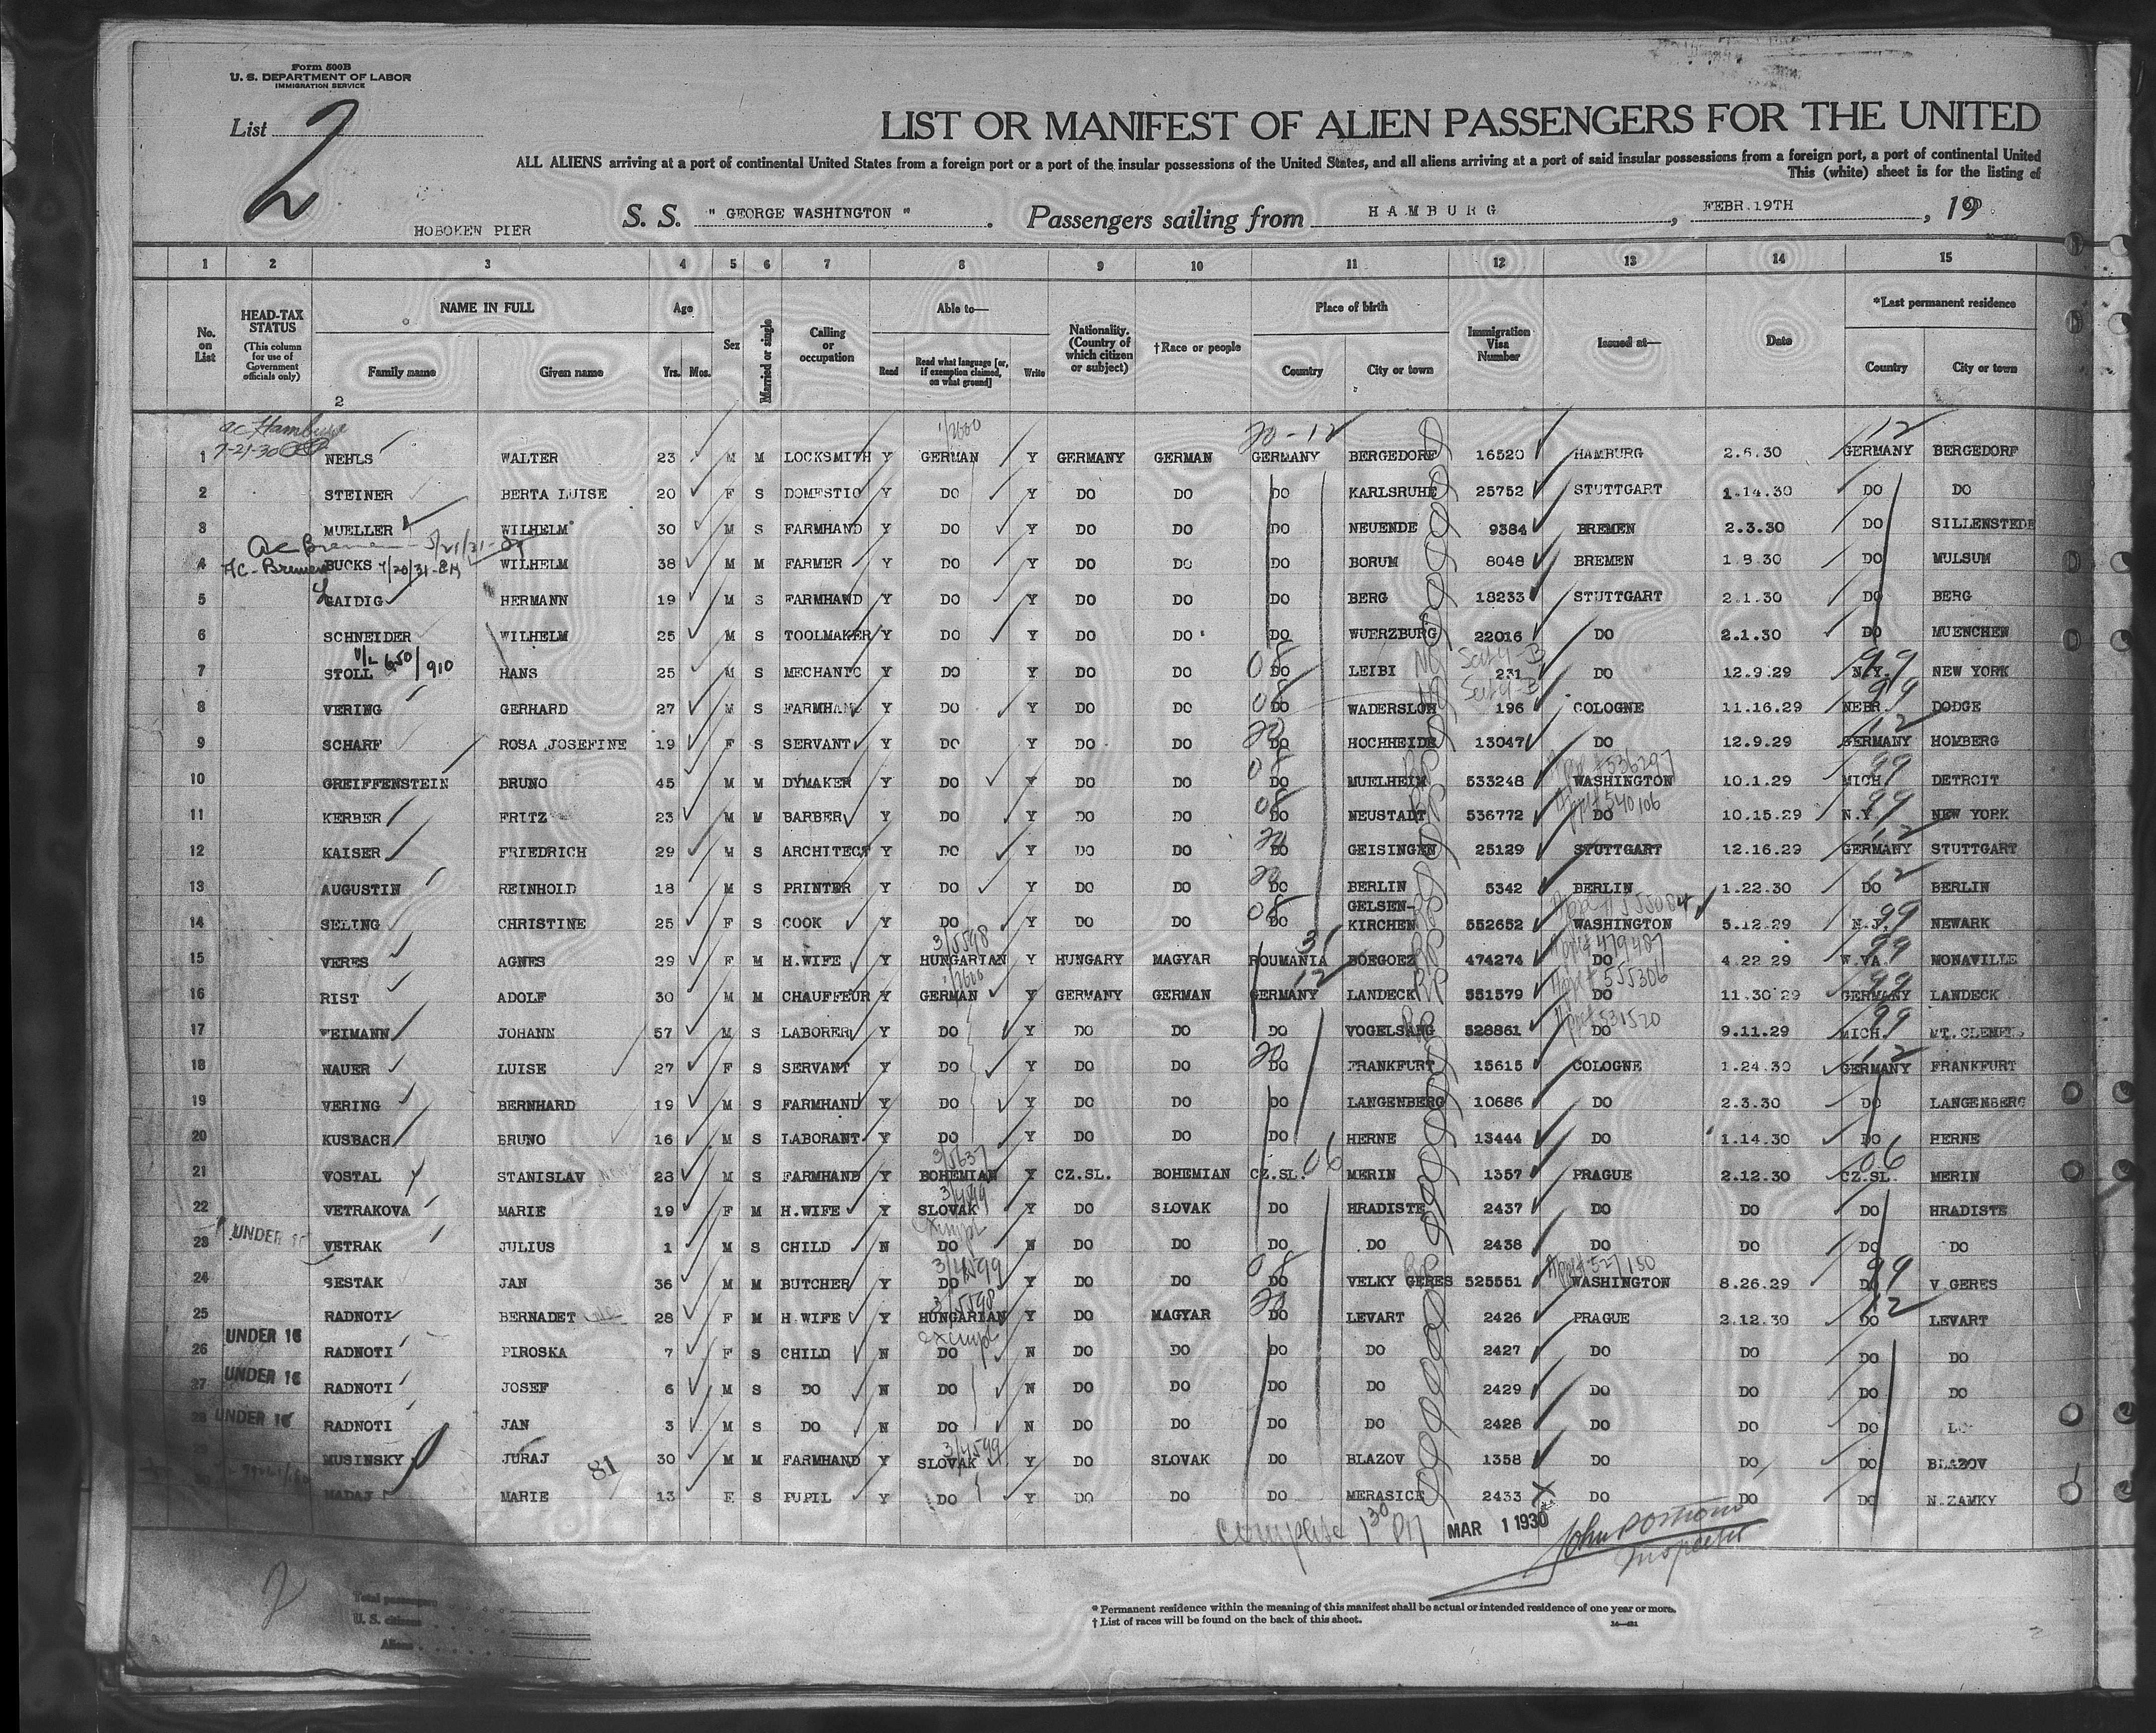 Form 500B
U. S. DEPARTMENT OF LABOR
IMMIGRATION SERVICE
List 2
LIST OR MANIFEST OF ALIEN PASSENGERS FOR THE UNITED
ALL ALIENS arriving at a port of continental United States from a foreign port or a port of the insular possessions of the United States, and all aliens arriving at a port of said insular possessions from a foreign port, a port of continental United
This (white) sheet is for the listing of
HOBOKEN PIER S. S. " GEORGE WASHINGTON " . Passengers sailing from HAMBURG , FEBR.19TH , 19
1 2 3 4 5 6 7 8 9 10 11 12 13 14 15
No. on List HEAD-TAX STATUS (This column for use of Government officials only) NAME IN FULL Family name Given name Age Yrs. Mos. Sex Married or single Calling or occupation Able to— Read Read what language [or, if exemption claimed, on what ground] Write Nationality. (Country of which citizen or subject) †Race or people Place of birth Country City or town Immigration Visa Number Issued at— Date *Last permanent residence Country City or town
2
ac Hamburg 1/2600 20-12 12
1 7-21-30 NEHLS WALTER 23 M M LOCKSMITH Y GERMAN Y GERMANY GERMAN GERMANY BERGEDORF 16520 HAMBURG 2.6.30 GERMANY BERGEDORF
2 STEINER BERTA LUISE 20 F S DOMESTIC Y DO Y DO DO DO KARLSRUHE 25752 STUTTGART 1.14.30 DO DO
3 MUELLER WILHELM 30 M S FARMHAND Y DO Y DO DO DO NEUENDE 9384 BREMEN 2.3.30 DO SILLENSTEDE
ac Bremen
4 A/C-Bremen BUCKS 4/20/31 WILHELM 38 M M FARMER Y DO Y DO DO DO BORUM 8048 BREMEN 1.8.30 DO MULSUM
5 GAIDIG HERMANN 19 M S FARMHAND Y DO Y DO DO DO BERG 18233 STUTTGART 2.1.30 DO BERG
6 SCHNEIDER WILHELM 25 M S TOOLMAKER Y DO Y DO DO DO WUERZBURG 22016 DO 2.1.30 DO MUENCHEN
V/L 650/910 08 99
7 STOLL HANS 25 M S MECHANIC Y DO Y DO DO DO LEIBI 231 DO 12.9.29 N.Y. NEW YORK
08 99
8 VERING GERHARD 27 M S FARMHAND Y DO Y DO DO DO WADERSLOH 196 COLOGNE 11.16.29 NEBR. DODGE
20 12
9 SCHARF ROSA JOSEFINE 19 F S SERVANT Y DO Y DO DO DO HOCHHEIDE 13047 DO 12.9.29 GERMANY HOMBERG
08 536297 99
10 GREIFFENSTEIN BRUNO 45 M M DYMAKER Y DO Y DO DO DO MUELHEIM 533248 WASHINGTON 10.1.29 MICH. DETROIT
08 540106 99
11 KERBER FRITZ 23 M M BARBER Y DO Y DO DO DO NEUSTADT 536772 DO 10.15.29 N.Y. NEW YORK
20 12
12 KAISER FRIEDRICH 29 M S ARCHITECT Y DO Y DO DO DO GEISINGEN 25129 STUTTGART 12.16.29 GERMANY STUTTGART
20 12
13 AUGUSTIN REINHOLD 18 M S PRINTER Y DO Y DO DO DO BERLIN 5342 BERLIN 1.22.30 DO BERLIN
08 GELSEN- 99
14 SELING CHRISTINE 25 F S COOK Y DO Y DO DO DO KIRCHEN 552652 WASHINGTON 5.12.29 N.J. NEWARK
3/5598 31 479487 99
15 VERES AGNES 29 F M H.WIFE Y HUNGARIAN Y HUNGARY MAGYAR ROUMANIA BOEGOEZ 474274 DO 4.22.29 W.VA. MONAVILLE
1/2600 12 555306 99
16 RIST ADOLF 30 M M CHAUFFEUR Y GERMAN Y GERMANY GERMAN GERMANY LANDECK 551579 DO 11.30.29 GERMANY LANDECK
531520 99
17 WEIMANN JOHANN 57 M S LABORER Y DO Y DO DO DO VOGELSANG 528861 DO 9.11.29 MICH. MT.CLEMENS
20 12
18 NAUER LUISE 27 F S SERVANT Y DO Y DO DO DO FRANKFURT 15615 COLOGNE 1.24.30 GERMANY FRANKFURT
19 VERING BERNHARD 19 M S FARMHAND Y DO Y DO DO DO LANGENBERG 10686 DO 2.3.30 DO LANGENBERG
20 KUSBACH BRUNO 16 M S LABORANT Y DO Y DO DO DO HERNE 13444 DO 1.14.30 DO HERNE
3/5637 06 06
21 VOSTAL STANISLAV 28 M S FARMHAND Y BOHEMIAN Y CZ.SL. BOHEMIAN CZ.SL. MERIN 1357 PRAGUE 2.12.30 CZ.SL. MERIN
3/4599
22 VETRAKOVA MARIE 19 F M H.WIFE Y SLOVAK Y DO SLOVAK DO HRADISTE 2437 DO DO DO HRADISTE
exempt
23 UNDER 16 VETRAK JULIUS 1 M S CHILD N DO N DO DO DO DO 2438 DO DO DO DO
3/4599 08 527150 99
24 SESTAK JAN 36 M M BUTCHER Y DO Y DO DO DO VELKY GERES 525551 WASHINGTON 8.26.29 DO V.GERES
3/5598 20 12
25 RADNOTI BERNADET 28 F M H.WIFE Y HUNGARIAN Y DO MAGYAR DO LEVART 2426 PRAGUE 2.12.30 DO LEVART
exempt
26 UNDER 16 RADNOTI PIROSKA 7 F S CHILD N DO N DO DO DO DO 2427 DO DO DO DO
27 UNDER 16 RADNOTI JOSEF 6 M S DO N DO N DO DO DO DO 2429 DO DO DO DO
28 UNDER 16 RADNOTI JAN 3 M S DO N DO N DO DO DO DO 2428 DO DO DO
3/4599
29 MUSINSKY JURAJ 81 30 M M FARMHAND Y SLOVAK Y DO SLOVAK DO BLAZOV 1358 DO DO DO BLAZOV
MADAJ MARIE 13 F S PUPIL Y DO Y DO DO DO MERASICE 2433 DO DO DO N.ZAMKY
Complete 1 30 PM MAR 1 1930 John
Inspector
2
Total passengers
U. S. citizens
Aliens
* Permanent residence within the meaning of this manifest shall be actual or intended residence of one year or more.
† List of races will be found on the back of this sheet.